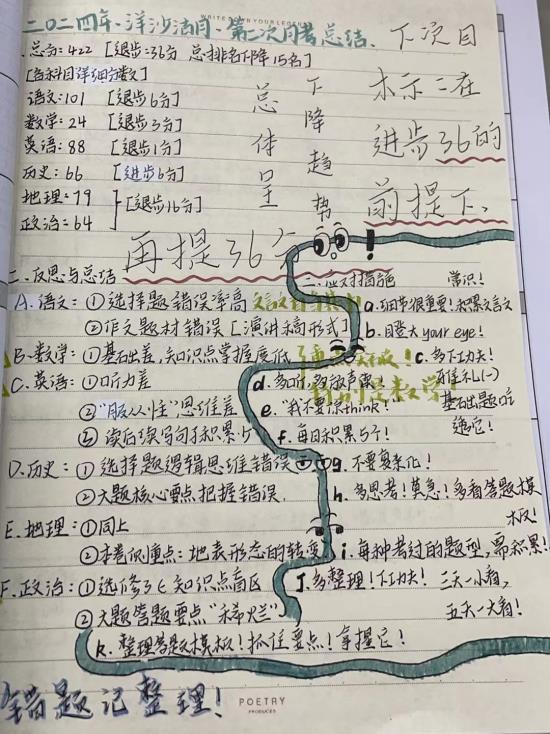 WRITE DOWN YOUR LEGEND
二〇二四年、洋沙洁月、第二次月考总结、
一、总分:422 [退步:36分 总排名下降15名]
[各科目详细分数]
语文:101 [退步6分]
数学:24 [退步3分]
英语:88 [退步1分]
历史:66 [进步6分]
地理:79
政治:64
[退步16分]
总体呈
下降趋势
下次目
标示:在
进步36的
前提下、
再提36分
!
二、反思与总结
三、应对措施
A.语文:①选择题错误率高
②作文题材错误[演讲稿形式]
B.数学:①基础差,知识点掌握度低
C.英语:①听力差
②"服从性"思维差
③读后续写句子积累少
D.历史:①选择题逻辑思维错误
②大题核心要点把握错误.
E.地理:①同上
②本卷侧重点:地表形态的转变
F.政治:①选修3七知识点盲区
②大题答题要点"稀烂"
常识!
a.细节很重要!积累文言文
b.瞪大your eye!
c.多下功夫!
基础题吃
透它!
d.多听,多放声读!
e."我不要你think!"
f.每日积累5个!
g.不要复杂化!
h.多思考!莫急!多看答题模
板!
i.每种考过的题型,需积累!
J.多整理!下功夫!三天一小看,
五天一大看!
k.整理答题模板!抓住要点!掌握它!
错题记整理!
POETRY
PRODUCES